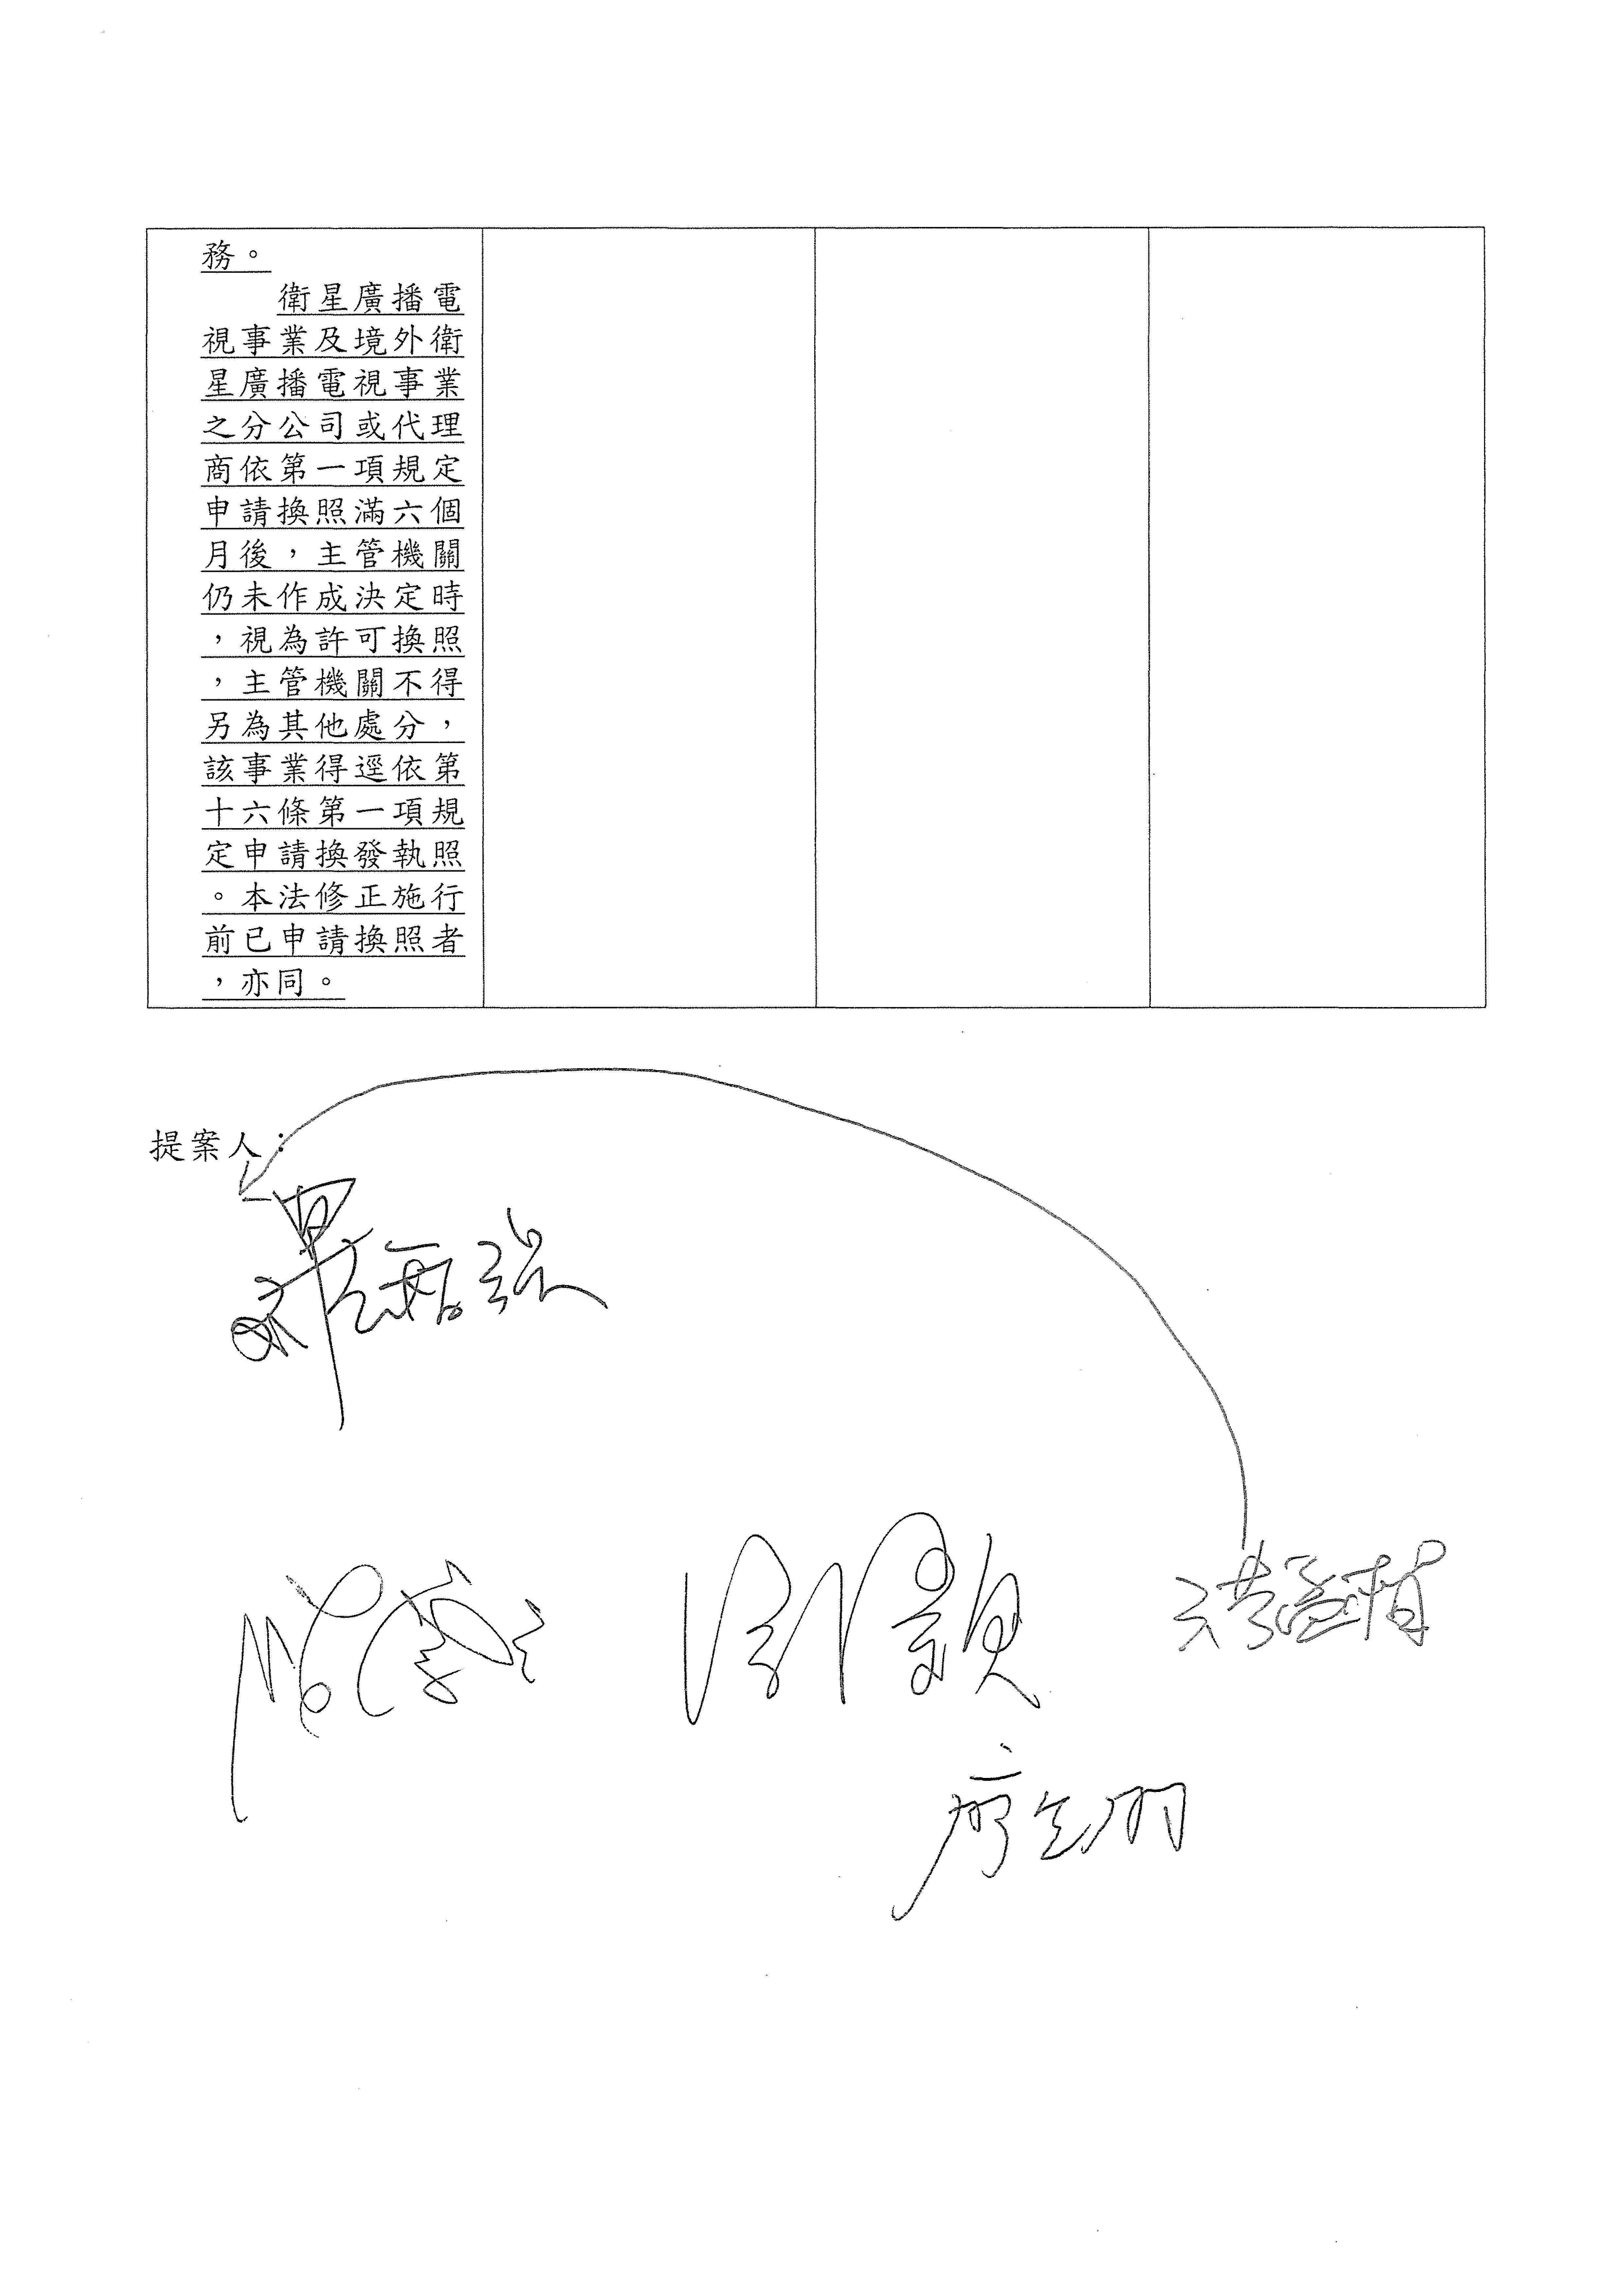 務。
衛星廣播電
視事業及境外衛
星廣播電視事業
之分公司或代理
商依第一項規定
申請換照滿六個
月後，主管機關
仍未作成決定時
，視為許可換照
，主管機關不得
另為其他處分，
該事業得逕依第
十六條第一項規
定申請換發執照
。本法修正施行
前已申請換照者
，亦同。
提案人：
羅智強
洪孟楷
廖先翔